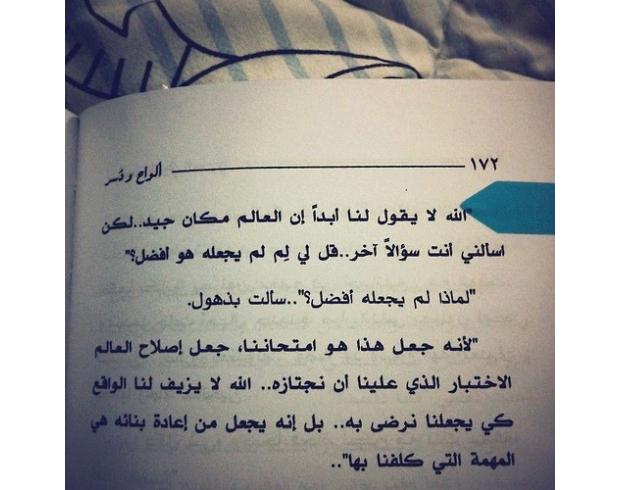 ١٧٢ ألواح ودسر
"الله لا يقول لنا أبداً إن العالم مكان جيد..لكن
اسألني أنت سؤالاً آخر..قل لي لِم لم يجعله هو أفضل؟"
"لماذا لم يجعله أفضل؟"..سألت بذهول.
"لأنه جعل هذا هو امتحاننا، جعل إصلاح العالم
الاختبار الذي علينا أن نجتازه.. الله لا يزيف لنا الواقع
كي يجعلنا نرضى به.. بل إنه يجعل من إعادة بنائه هي
المهمة التي كلفنا بها"..